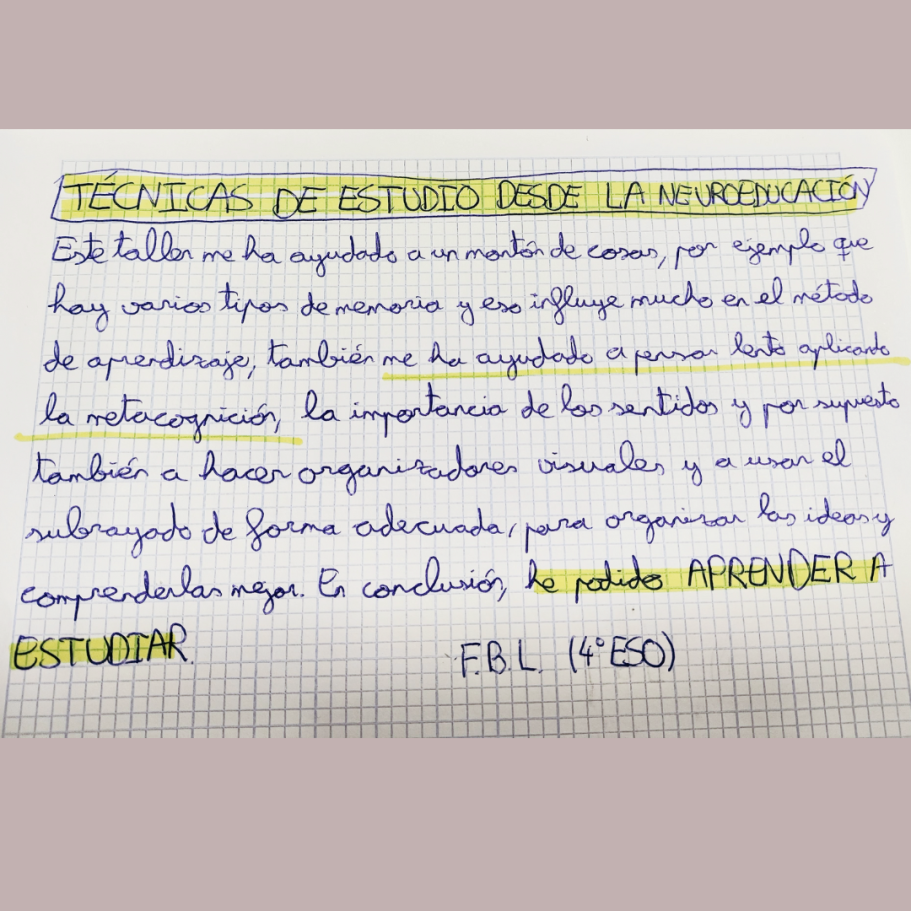 TÉCNICAS DE ESTUDIO DESDE LA NEUROEDUCACIÓN
Este taller me ha ayudado a un montón de cosas, por ejemplo que
hay varios tipos de memoria y eso influye mucho en el método
de aprendizaje, también me ha ayudado a pensar lento aplicando
la metacognición, la importancia de los sentidos y por supuesto
también a hacer organizadores visuales y a usar el
subrayado de forma adecuada, para organizar las ideas y
comprenderlas mejor. En conclusión, he podido APRENDER A
ESTUDIAR.
F.B.L. (4º ESO)